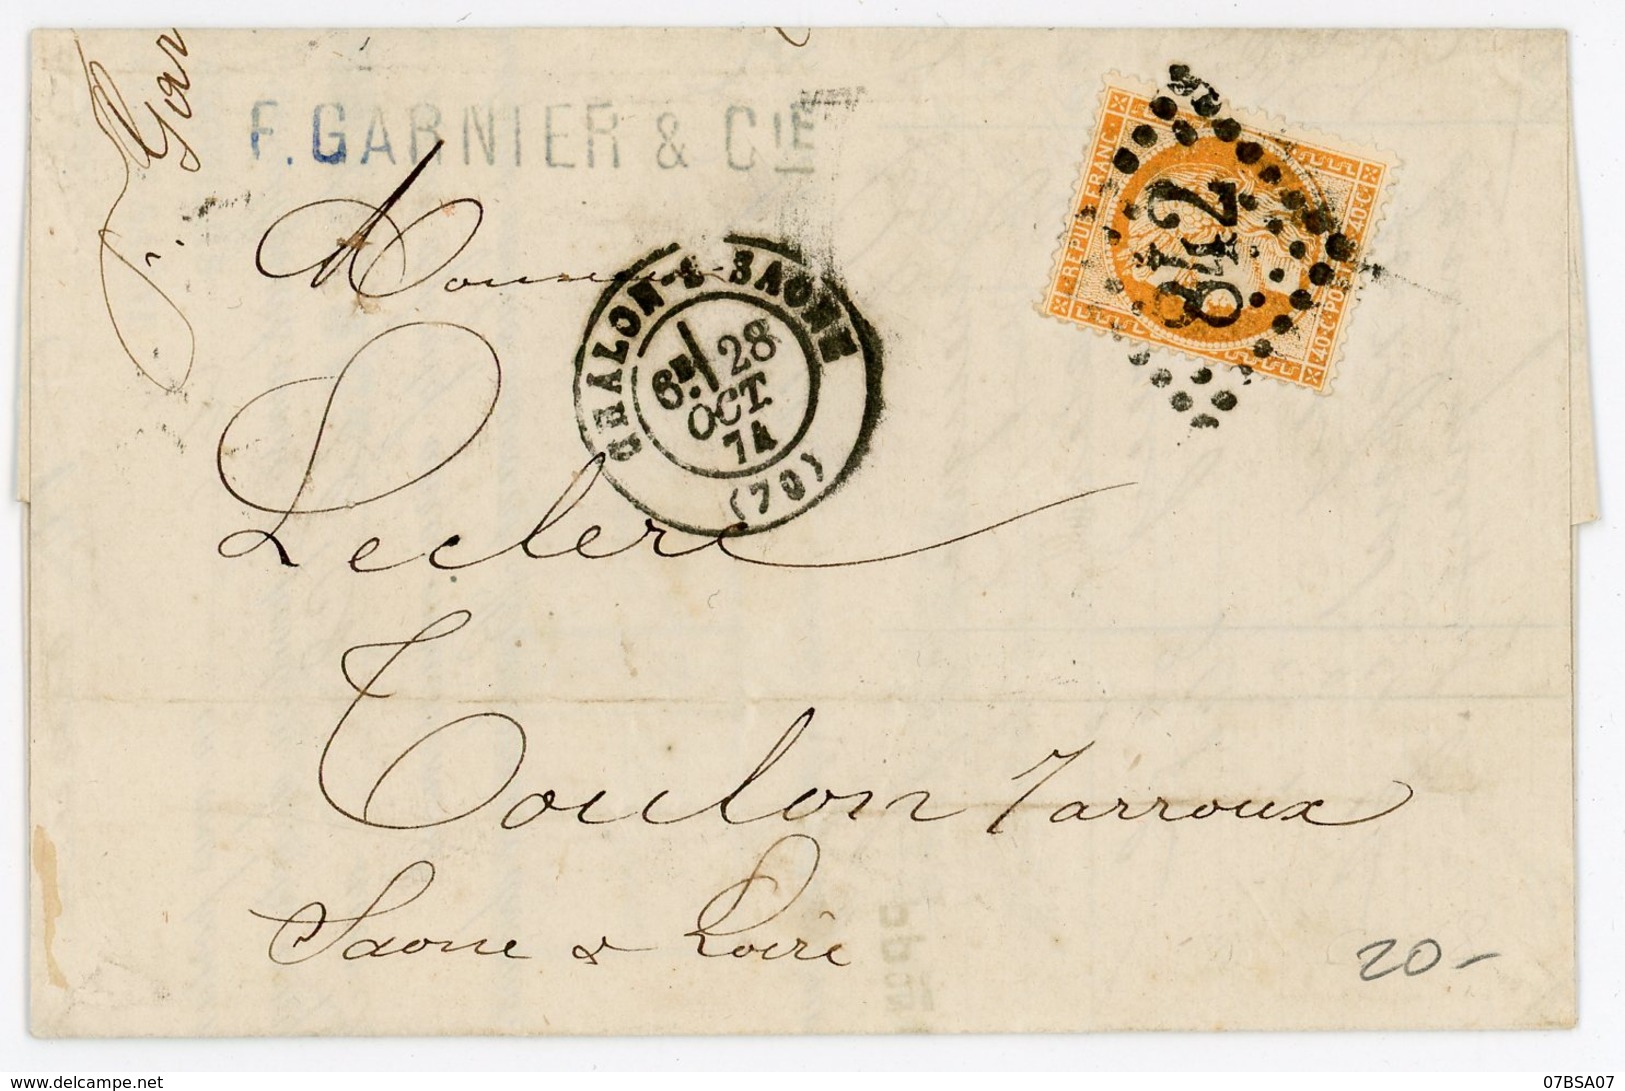 Gar
F. GARNIER & CIE
REPUB. FRANC.
40.C. POSTE 40.C
842
CHALON-S-SAONE
6E 28
OCT.
74
(70)
Monsieur
Leclerc
Toulon s/arroux
Saone & Loire
20-
www.delcampe.net
07BSA07